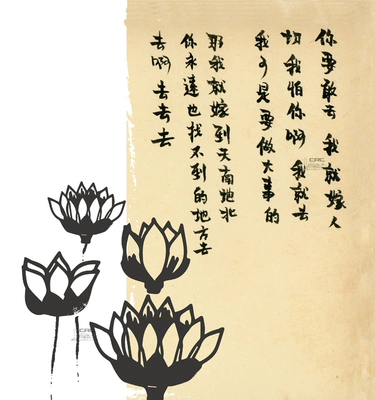 你要敢去 我就嫁人
切我怕你啊 我就去
我可是要做大事的
那我就嫁到天南地北
你永遠也找不到的地方去
去啊 去去去
CRC